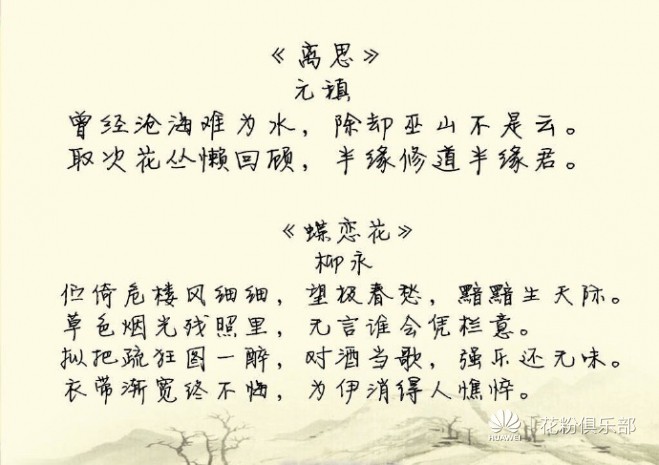 《离思》
元镇
曾经沧海难为水，除却巫山不是云。
取次花丛懒回顾，半缘修道半缘君。
《蝶恋花》
柳永
伫倚危楼风细细，望极春愁，黯黯生天际。
草色烟光残照里，无言谁会凭栏意。
拟把疏狂图一醉，对酒当歌，强乐还无味。
衣带渐宽终不悔，为伊消得人憔悴。
HUAWEI 花粉俱乐部